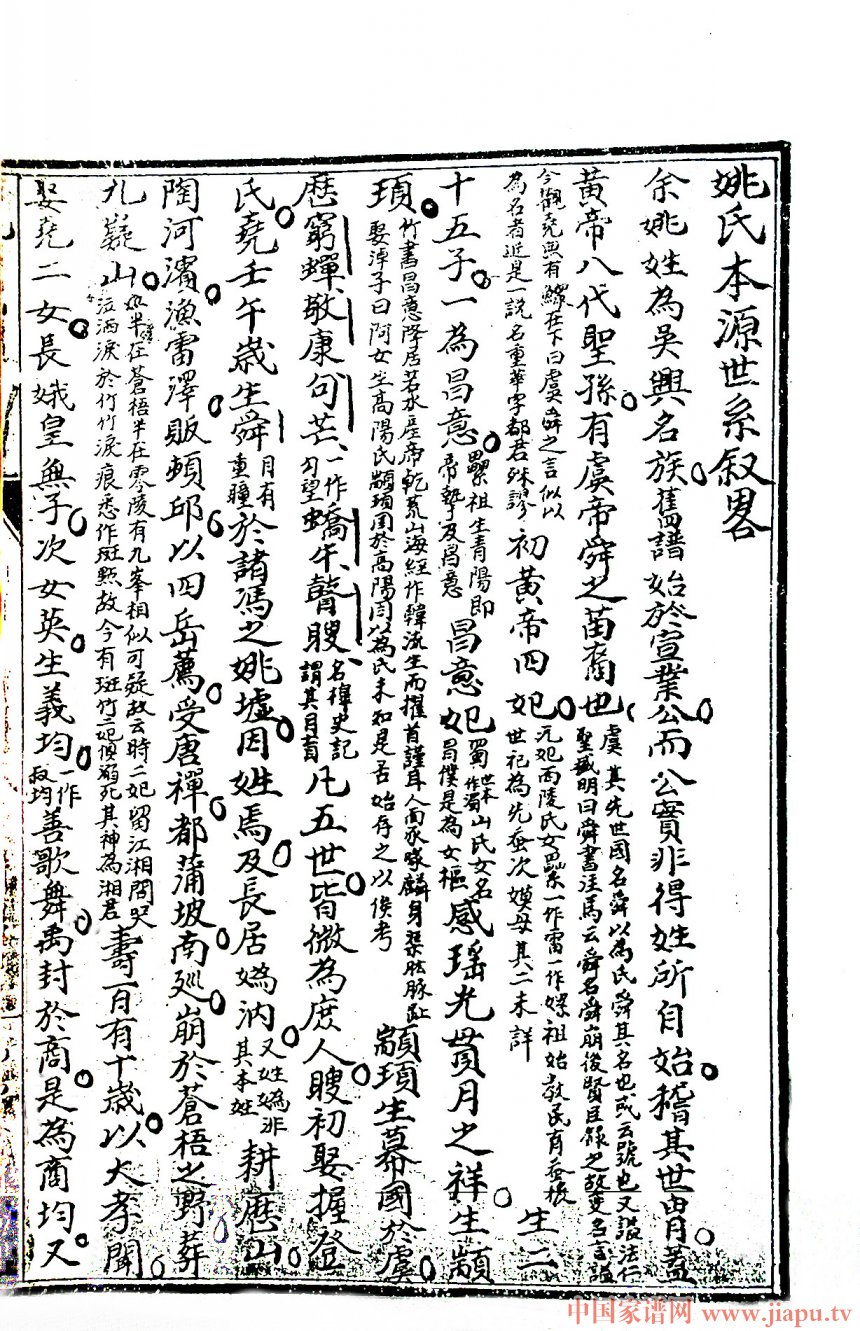 姚氏本源世系叙畧
余姚姓為吳興名族舊譜始於宣業公而公實非得姓所自始稽其世胄蓋
黃帝八代聖孫有虞帝舜之苗裔也虞其先世國名舜以為氏舜其名也或云號也又諡法仁
聖盛明曰舜書注馬云舜名舜崩後賢臣錄之故變名言諡
今觀堯典有鰥在下曰虞舜之言似以
為名者近是一說名重華字都君殊謬初黃帝四妃元妃西陵氏女嫘一作雷一作嫘祖始教民育蚕
世祀為先蚕次嫫母其二未詳生二
十五子一為昌意嫘祖生青陽即
帝摯及昌意昌意妃蜀世本作濁山氏女名
昌僕是為女樞感瑤光貫月之祥生顓
頊竹書昌意降居若水產帝乾荒山海經作韓流生而擢首謹耳人面豕喙麟身渠股豚趾
娶淖子曰阿女生高陽氏顓頊國於高陽因以為氏未知是否始存之以俟考顓頊生幕國於虞
歷窮蟬敬康句芒一作
句望蟜牛瞽瞍名樟史記
謂其目盲凡五世皆微為庶人瞍初娶握登
氏堯壬午歲生舜目有
重瞳於諸馮之姚墟因姓焉及長居媯汭又姓媯非
其本姓耕歷山
陶河濱漁雷澤販頓邱以四岳薦受唐禪都蒲坂南廵崩於蒼梧之野葬
九嶷山半在蒼梧半在零陵有九峯相似可疑故云時二妃留江湘間哭
泣洒淚於竹竹淚痕悉作斑點故今有斑竹二妃溺死其神為湘君壽百有十歲以大孝聞
娶堯二女長娥皇無子次女英生義均一作
叔均善歌舞禹封於商是為商均又
中国家谱网 www.jiapu.tv